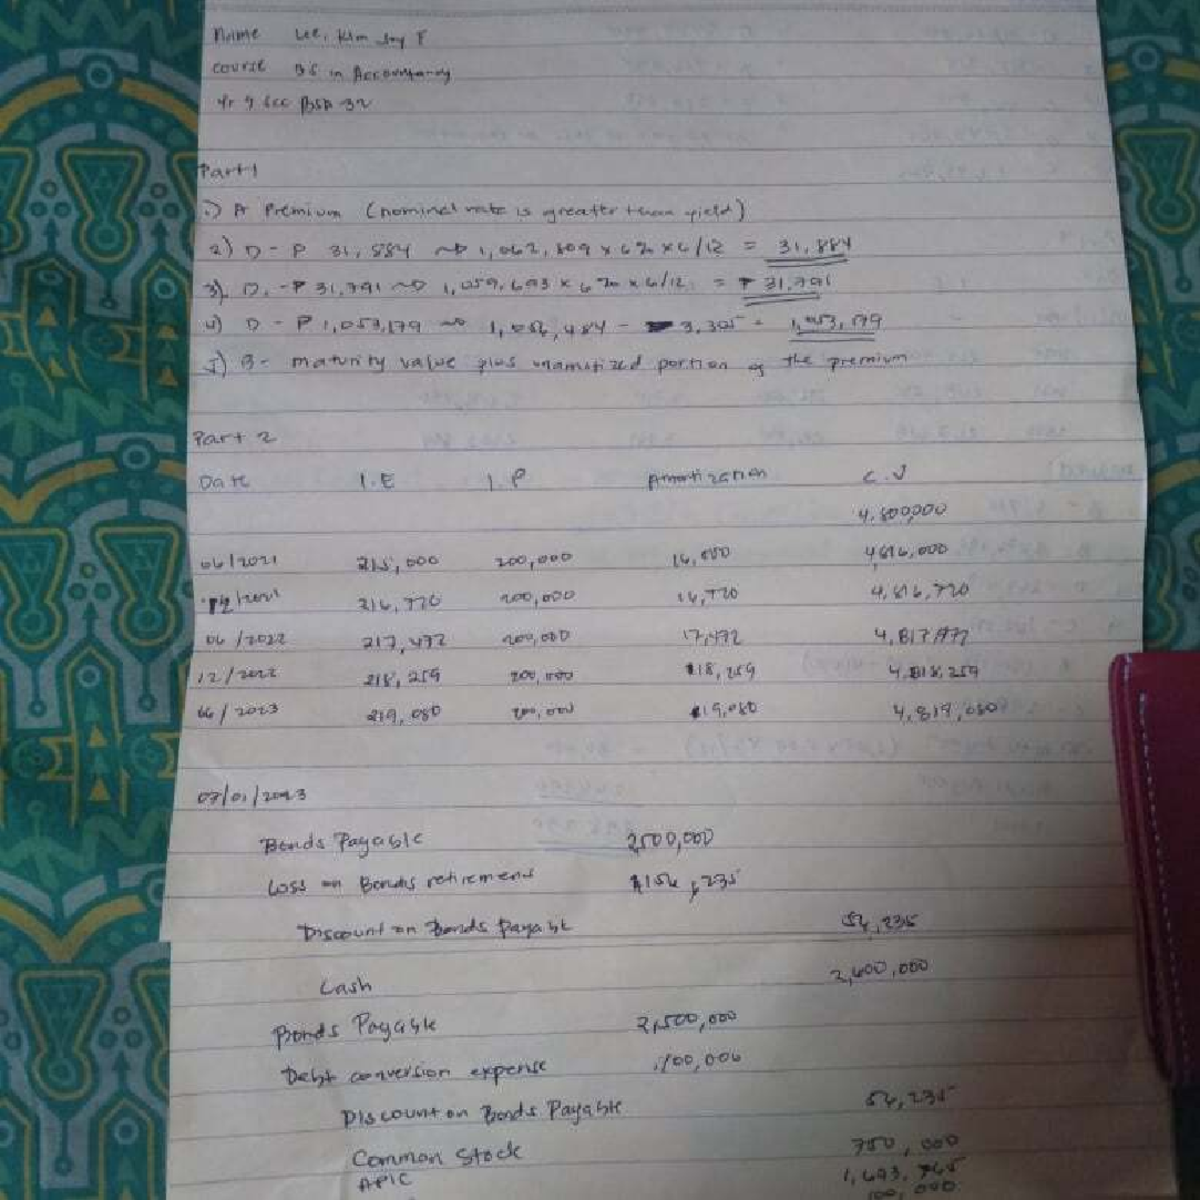 Name Lee, Kim Jay P
course BS in Accountancy
Yr & Sec BSA 32
Part 1
1.) A Premium (nominal rate is greatter than yield)
2) D - P 31,884 ~> 1,062,809 x 6% x 6/12 = 31,884
3). D. - P 31,791 ~> 1,059,693 x 6% x 6/12 = P 31,791
4) D - P 1,053,179 ~> 1,056,484 - 3,305 = 1,053,179
5) B - maturity value plus unamotized portion of the premium
Part 2
Date I.E I.P Amortization C.V
4,800,000
06/2021 216,000 200,000 16,000 4,816,000
12/2021 216,720 200,000 16,720 4,816,720
06/2022 217,472 200,000 17,472 4,817,472
12/2022 218,259 200,000 18,259 4,818,259
06/2023 219,080 200,000 19,080 4,819,080
07/01/2023
Bonds Payable 2500,000
Loss on Bonds retirement 156,235
Discount on Bonds Payable 56,235
Cash 2,600,000
Bonds Payable 2,500,000
Debt conversion expense 100,000
Discount on Bonds Payable 56,235
Common Stock 750,000
APIC 1,693,765